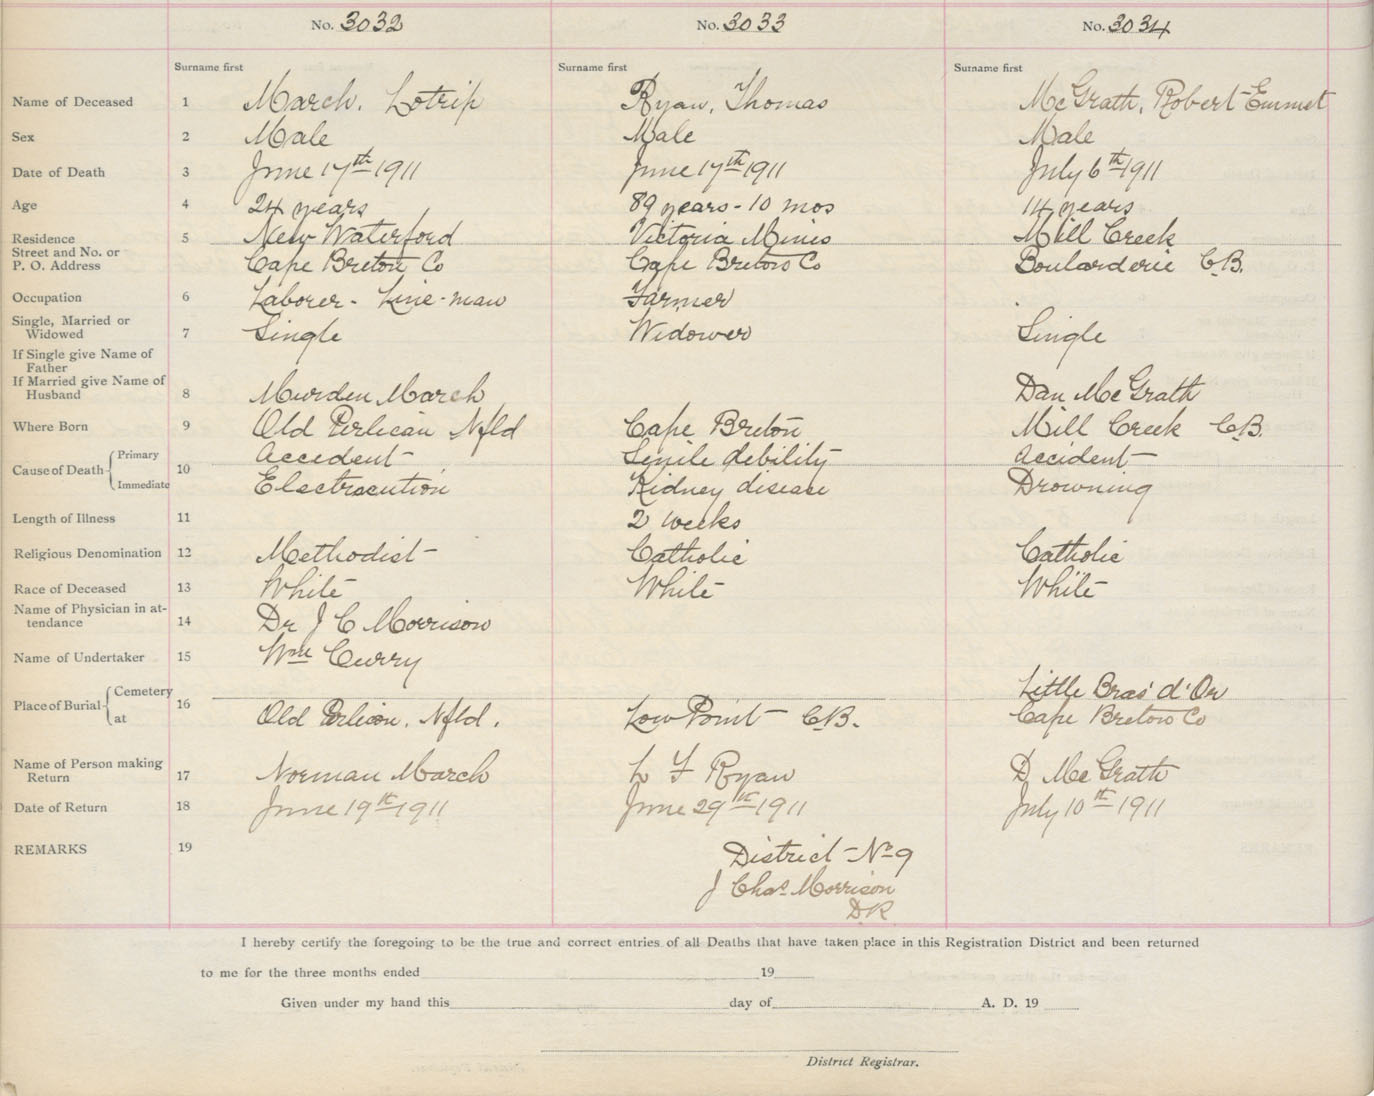 No. 3032 No. 3033 No. 3034
Surname first Surname first Surname first
Name of Deceased 1 March, Lotrip Ryan, Thomas McGrath, Robert Emmet
Sex 2 Male Male Male
Date of Death 3 June 17th 1911 June 17th 1911 July 6th 1911
Age 4 24 years 89 years - 10 mos 14 years
Residence 5 New Waterford Victoria Mines Mill Creek
Street and No. or
P. O. Address Cape Breton Co Cape Breton Co Boularderie C.B.
Occupation 6 Laborer - Line-man Farmer
Single, Married or
Widowed 7 Single Widower Single
If Single give Name of
Father
If Married give Name of
Husband 8 Murden March Dan McGrath
Where Born 9 Old Perlican Nfld Cape Breton Mill Creek C.B.
Cause of Death Primary 10 Accident Senile debility Accident
Immediate Electrocution Kidney disease Drowning
Length of Illness 11 2 weeks
Religious Denomination 12 Methodist Catholic Catholic
Race of Deceased 13 White White White
Name of Physician in at-
tendance 14 Dr J C Morrison
Name of Undertaker 15 Wm Curry
Place of Burial Cemetery 16 Little Bras d'Or
at Old Perlican, Nfld. Low Point C.B. Cape Breton Co
Name of Person making
Return 17 Norman March L F Ryan D McGrath
Date of Return 18 June 19th 1911 June 29th 1911 July 10th 1911
REMARKS 19 District No 9
J Chas Morrison
D.R
I hereby certify the foregoing to be the true and correct entries of all Deaths that have taken place in this Registration District and been returned
to me for the three months ended 19
Given under my hand this day of A. D. 19
District Registrar.